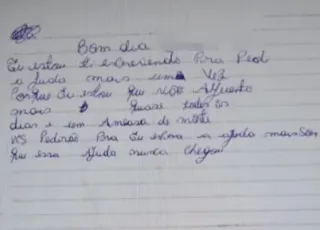 Bom dia
Eu estou ti escrevendo Pra Ped
a Juda mais uma Vez
Porque Eu estou que não Aguento
mais quase todos os
dias e sem Ameasa de morte
Pedirão Pra Eu espera a ajuda mais Sem
Que essa Ajuda nunca Chegou